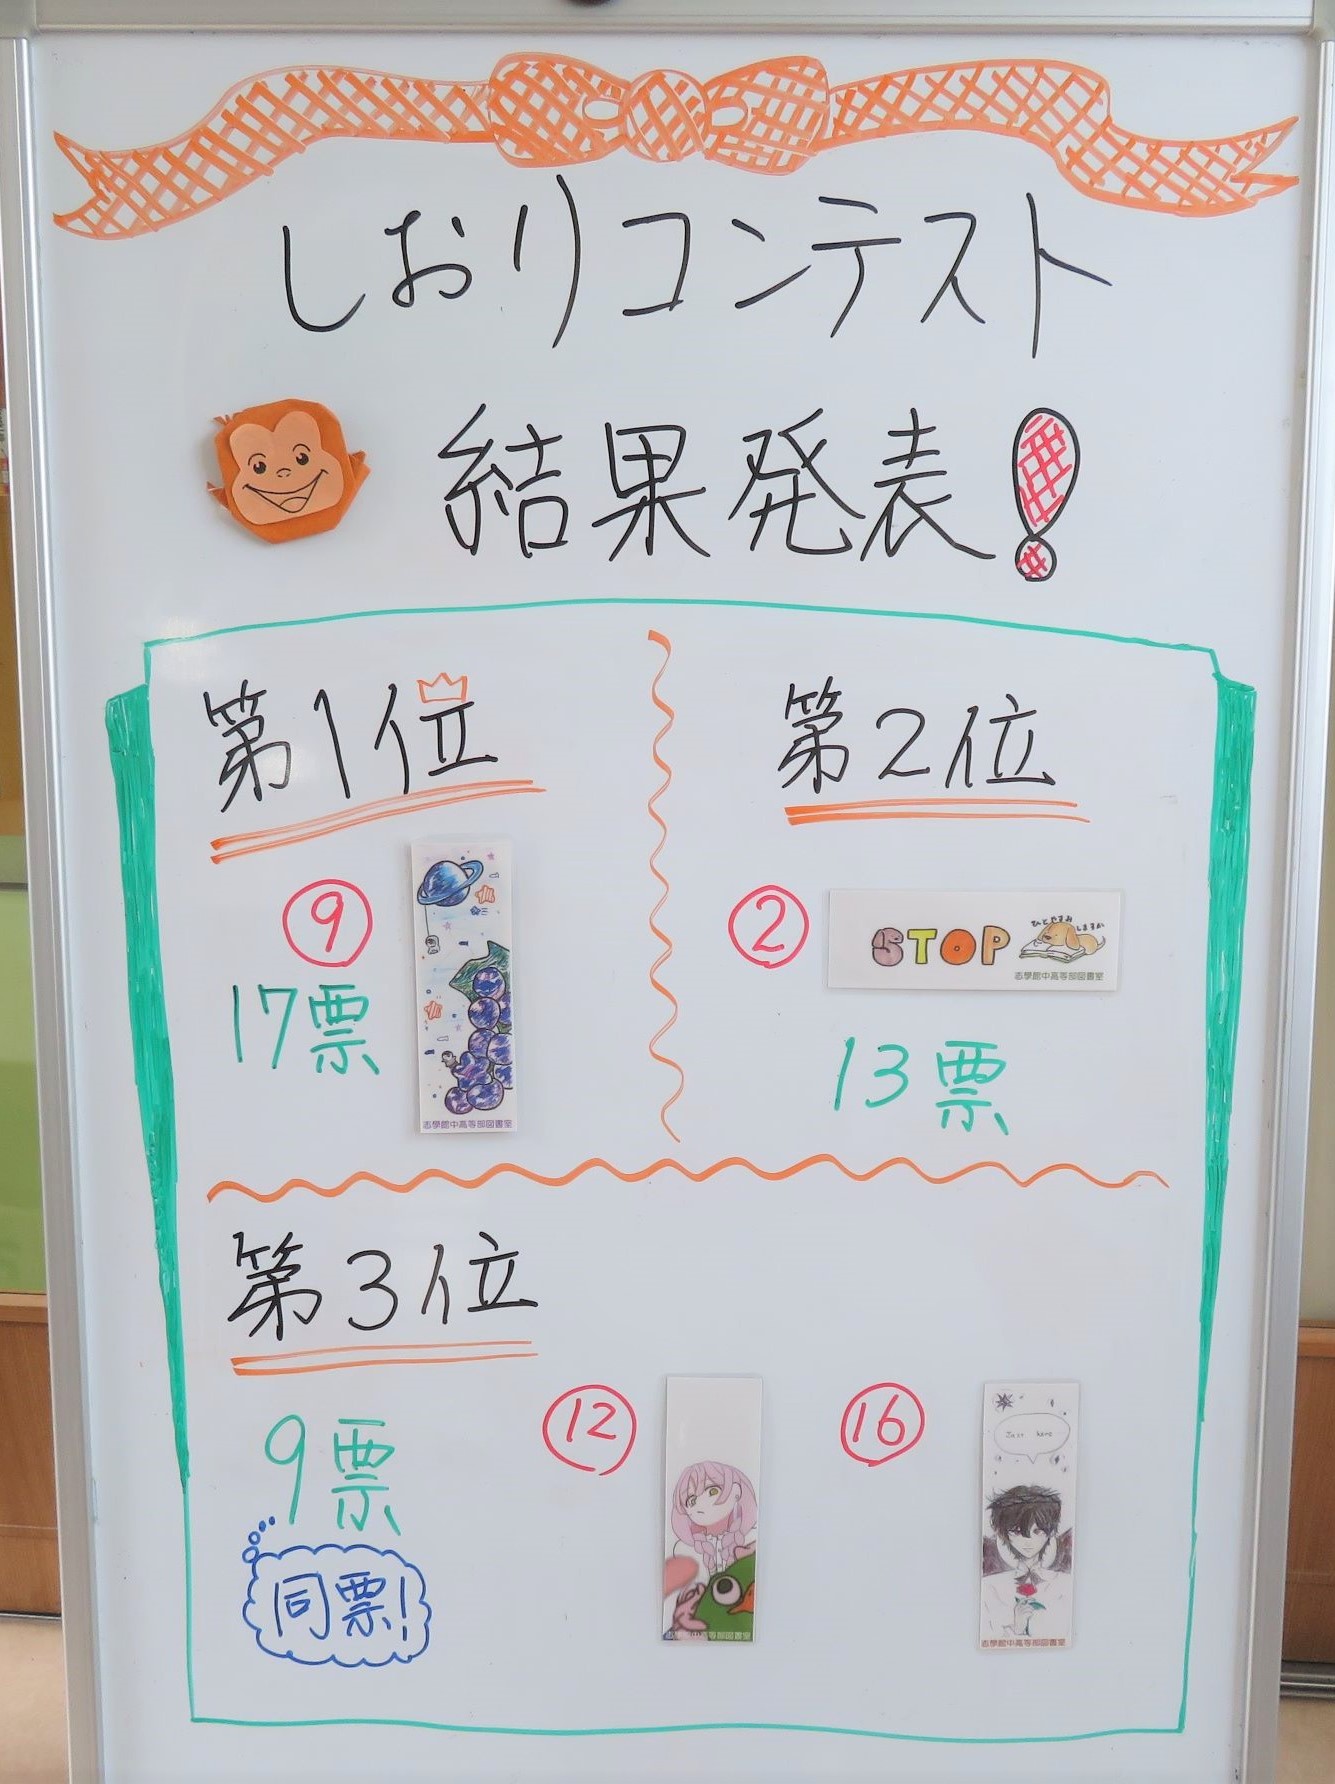 しおりコンテスト
結果発表！
第1位
⑨
17票
志學館中高等部図書室
第2位
②
STOP
ひとやすみ
しますか
志學館中高等部図書室
13票
第3位
9票
同票！
⑫
志學館中高等部図書室
⑯
Just here
志學館中高等部図書室